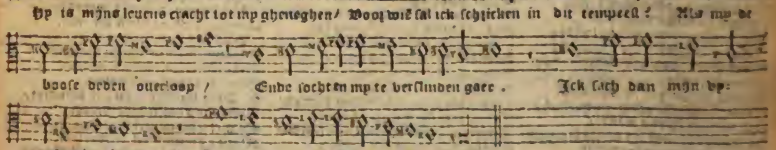 Hy is mijns leuens cracht tot mp gheneghen/ Voor wiē sal ick schricken in dit tempeest? Als mp de
boose deden ouerloop / Ende sochten mp te verslinden gaer. Ick sach dan mijn vp: